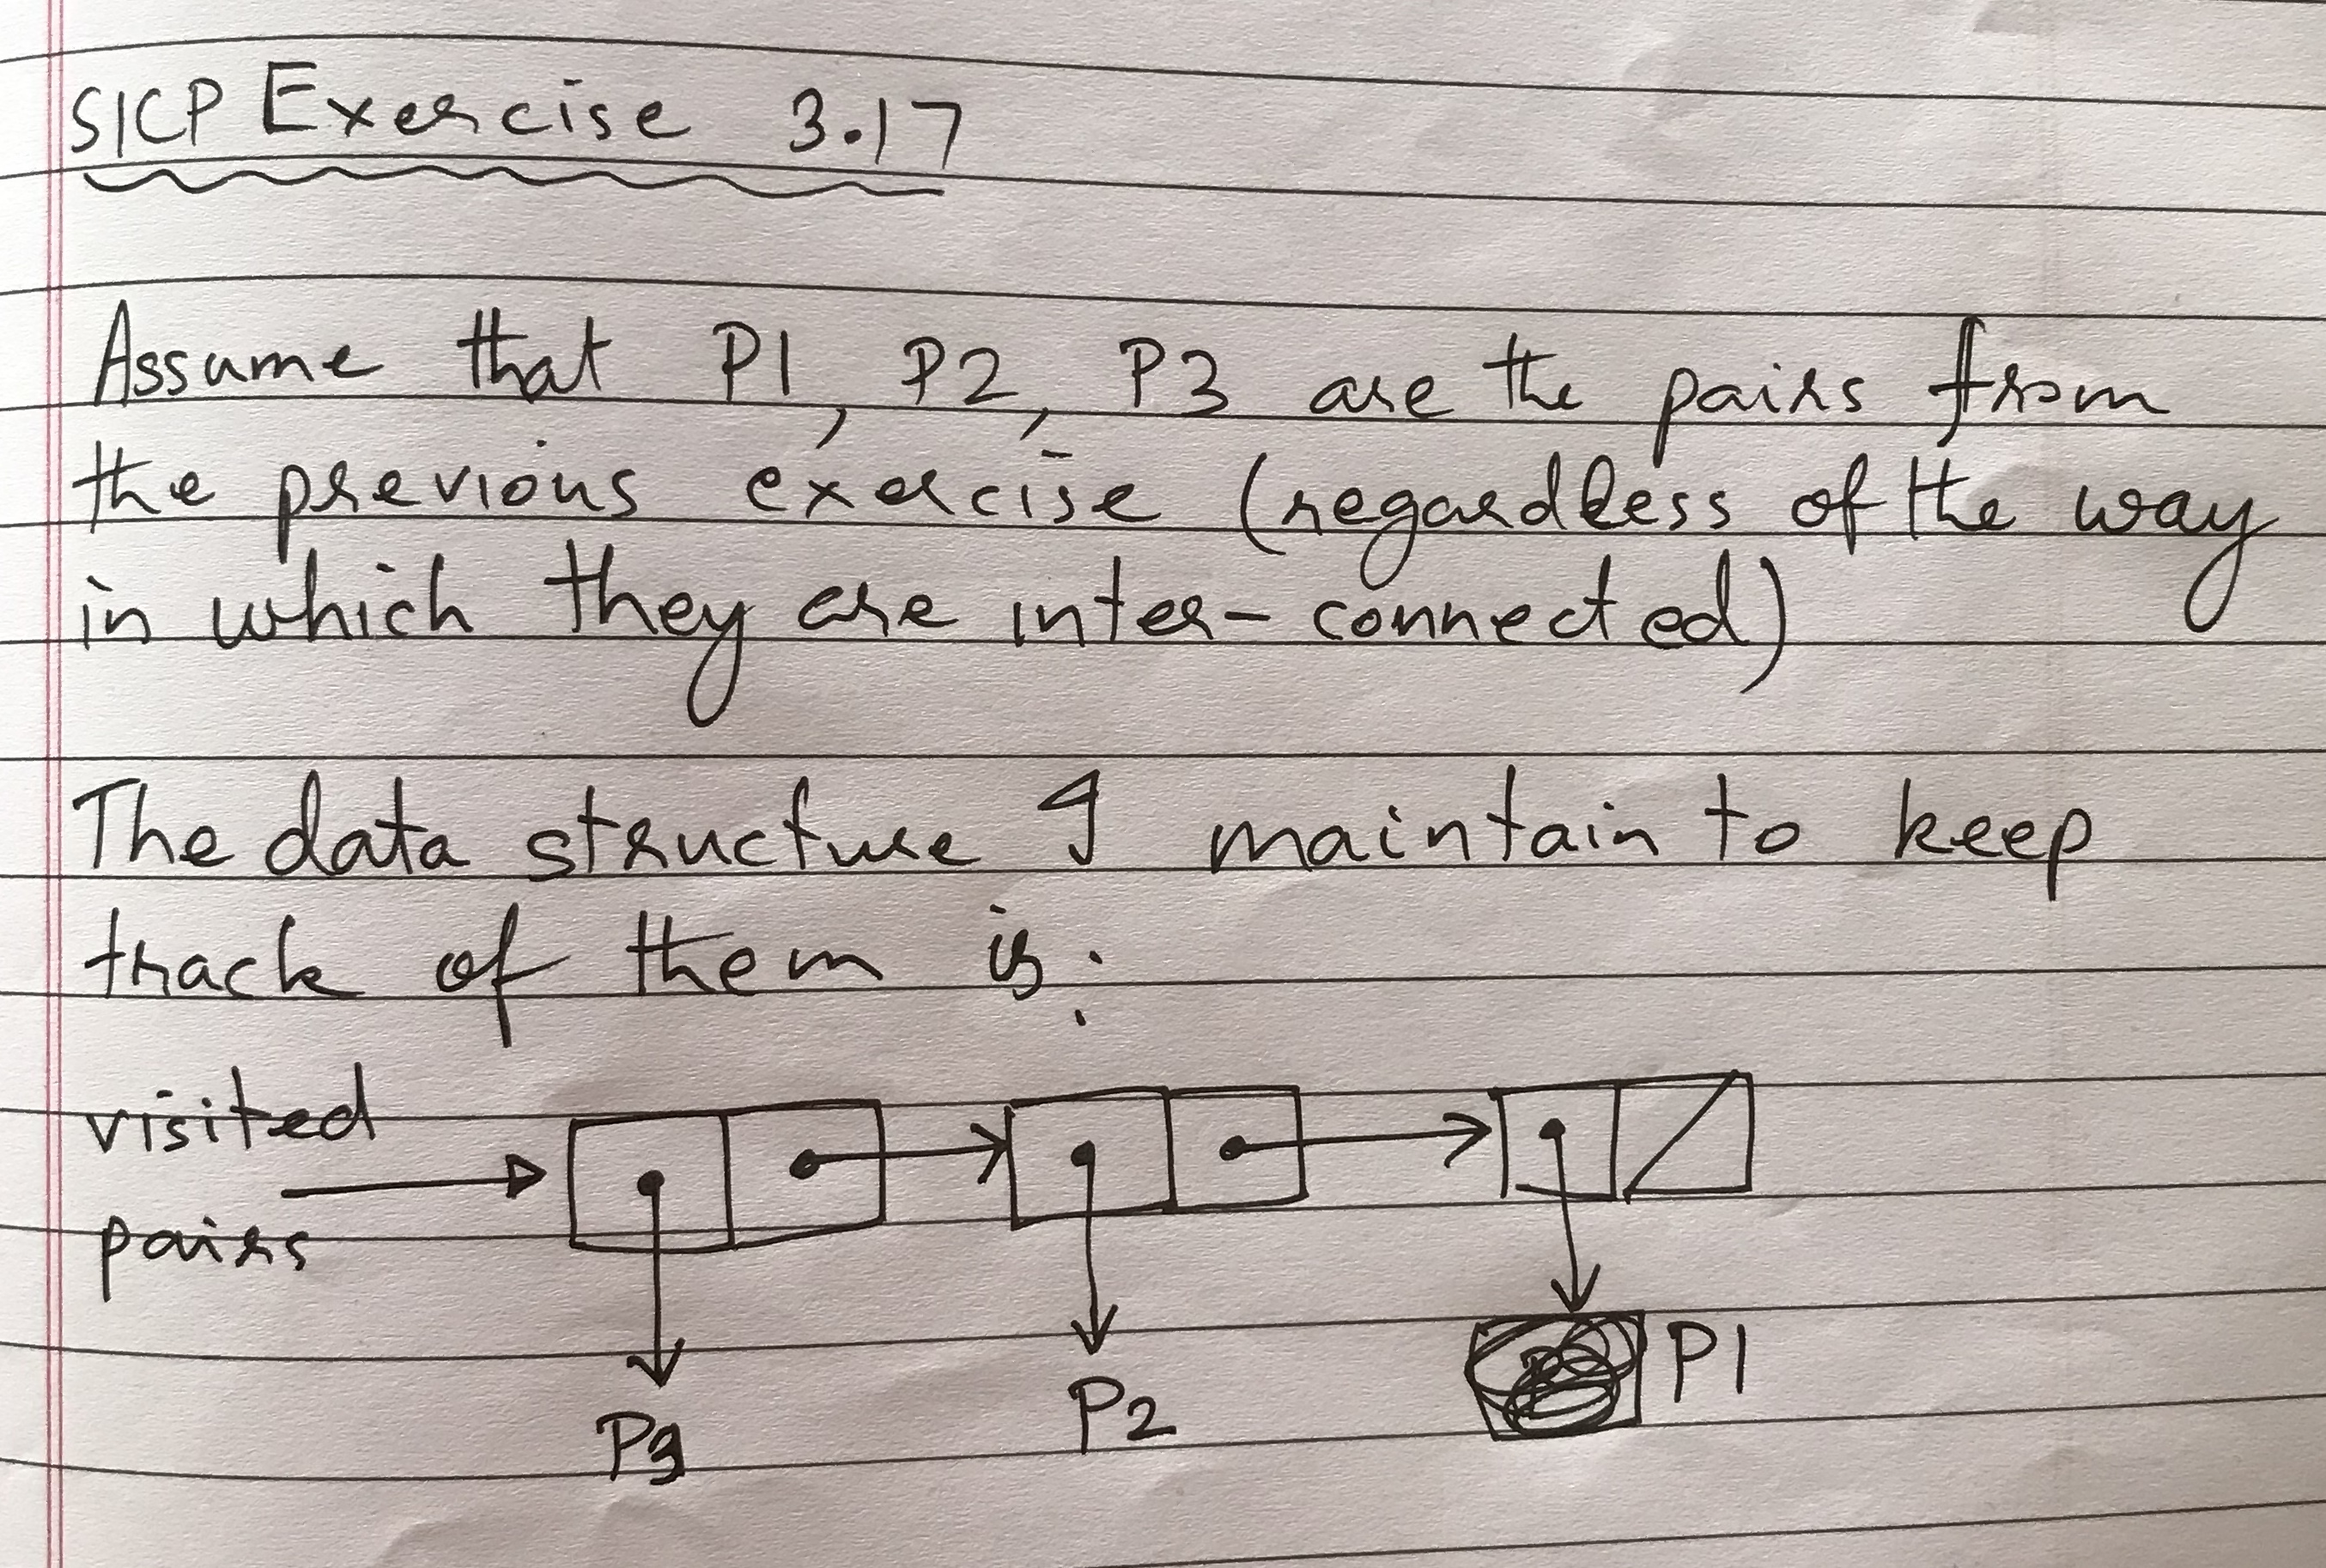 SICP Exercise 3.17
Assume that P1, P2, P3 are the pairs from
the previous exercise (regardless of the way
in which they are inter-connected)
The data structure I maintain to keep
track of them is:
visited
pairs
P3
P2
P1